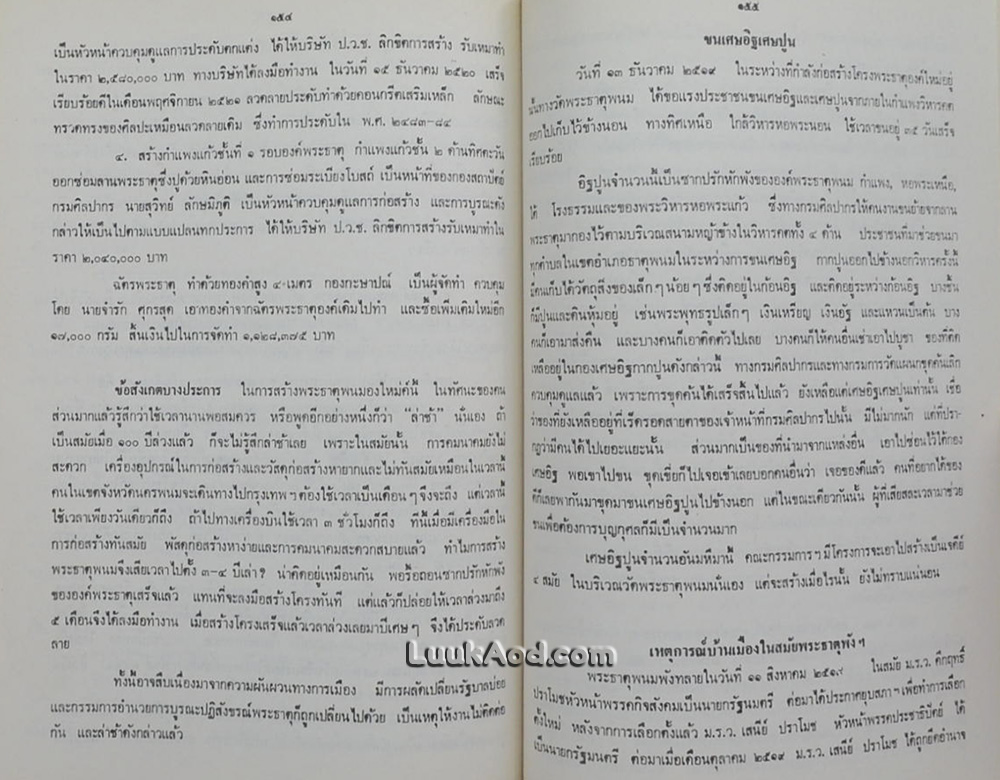 ๑๕๔
เป็นหัวหน้าควบคุมดูแลการประดับตกแต่ง ได้ให้บริษัท ป.ว.ช. ลิกขิตการสร้าง รับเหมาทำ
ในราคา ๒,๕๘๐,๐๐๐ บาท ทางบริษัทได้ลงมือทำงาน ในวันที่ ๑๕ ธันวาคม ๒๕๒๐ เสร็จ
เรียบร้อยดีในเดือนพฤศจิกายน ๒๕๒๑ ลวดลายประดับทำด้วยคอนกรีตเสริมเหล็ก ลักษณะ
ทรวดทรงของศิลปะเหมือนลวดลายเดิม ซึ่งทำการประดับใน พ.ศ. ๒๔๘๓-๘๔
๔. สร้างกำแพงแก้วชั้นที่ ๑ รอบองค์พระธาตุ กำแพงแก้วชั้น ๒ ด้านทิศตะวัน
ออกซ่อมลานพระธาตุซึ่งปูด้วยหินอ่อน และการซ่อมระเบียงโบสถ์ เป็นหน้าที่ของกองสถาปัตย์
กรมศิลปากร นายสุวิทย์ ลักษมีภูติ เป็นหัวหน้าควบคุมดูแลการก่อสร้าง และการบูรณะดัง
กล่าวให้เป็นไปตามแบบแปลนทกประการ ได้ให้บริษัท ป.ว.ช. ลิกขิตการสร้างรับเหมาทำใน
ราคา ๒,๐๔๐,๐๐๐ บาท
ฉัตรพระธาตุ ทำด้วยทองคำสูง ๔ เมตร กองกะษาปณ์ เป็นผู้จัดทำ ควบคุม
โดย นายจำรัก ศุกรสุด เอาทองคำจากฉัตรพระธาตุองค์เดิมไปทำ และซื้อเพิ่มเติมใหม่อีก
๑๗,๐๐๐ กรัม สิ้นเงินไปในการจัดทำ ๑,๑๒๘,๓๗๕ บาท
ข้อสังเกตบางประการ ในการสร้างพระธาตุพนมองใหม่ค์นี้ ในทัศนะของคน
ส่วนมากแล้วรู้สึกว่าใช้เวลานานพอสมควร หรือพูดอีกอย่างหนึ่งก็ว่า “ล่าช้า” นั่นเอง ถ้า
เป็นสมัยเมื่อ ๑๐๐ ปีล่วงแล้ว ก็จะไม่รู้สึกล่าช้าเลย เพราะในสมัยนั้น การคมนาคมยังไม่
สะดวก เครื่องอุปกรณ์ในการก่อสร้างและวัสดุก่อสร้างหายากและไม่ทันสมัยเหมือนในเวลานี้
คนในเขตจังหวัดนครพนมจะเดินทางไปกรุงเทพ ฯ ต้องใช้เวลาเป็นเดือน ๆ จึงจะถึง แต่เวลานี้
ใช้เวลาเพียงวันเดียวก็ถึง ถ้าไปทางเครื่องบินใช้เวลา ๓ ชั่วโมงก็ถึง ทีนี้เมื่อมีเครื่องมือใน
การก่อสร้างทันสมัย พัสดุก่อสร้างหาง่ายและการคมนาคมสะดวกสบายแล้ว ทำไมการสร้าง
พระธาตุพนมจึงเสียเวลาไปตั้ง ๓-๔ ปีเล่า ? น่าคิดอยู่เหมือนกัน พอรื้อถอนซากปรักหักพัง
ขององค์พระธาตุเสร็จแล้ว แทนที่จะลงมือสร้างโครงทันที แต่แล้วก็ปล่อยให้เวลาล่วงมาถึง
๕ เดือนจึงได้ลงมือทำงาน เมื่อสร้างโครงเสร็จแล้วเวลาล่วงเลยมาปีเศษ ๆ จึงได้ประดับลวด
ลาย
ทั้งนี้อาจสืบเนื่องมาจากความผันผวนทางการเมือง มีการผลัดเปลี่ยนรัฐบาลบ่อย
และกรรมการอำนวยการบูรณะปฏิสังขรณ์พระธาตุก็ถูกเปลี่ยนไปด้วย เป็นเหตุให้งานไม่ติดต่อ
กัน และล่าช้าดังกล่าวแล้ว
๑๕๕
ขนเศษอิฐเศษปูน
วันที่ ๑๓ ธันวาคม ๒๕๑๙ ในระหว่างที่กำลังก่อสร้างโครงพระธาตุองค์ใหม่อยู่
นั้นทางวัดพระธาตุพนม ได้ขอแรงประชาชนขนเศษอิฐและเศษปูนจากภายในกำแพงวิหารคด
ออกไปเก็บไว้ข้างนอน ทางทิศเหนือ ใกล้วิหารหอพระนอน ใช้เวลาขนอยู่ ๓๕ วันเสร็จ
เรียบร้อย
อิฐปูนจำนวนนี้เป็นซากปรักหักพังขององค์พระธาตุพนม กำแพง, หอพระเหนือ,
ใต้ โรงธรรมและของพระวิหารหอพระแก้ว ซึ่งทางกรมศิลปากรให้คนงานขนย้ายจากลาน
พระธาตุมากองไว้ตามบริเวณสนามหญ้าข้างในวิหารคดทั้ง ๔ ด้าน ประชาชนที่มาช่วยขนมา
ทุกตำบลในเขตอำเภอธาตุพนมในระหว่างการขนเศษอิฐ กากปูนออกไปข้างนอกวิหารครั้งนี้
มีคนเก็บได้วัตถุสิ่งของเล็ก ๆ น้อย ๆ ซึ่งติดอยู่ในก้อนอิฐ และติดอยู่ระหว่างก้อนอิฐ บางชิ้น
ก็มีปูนและดินหุ้มอยู่ เช่นพระพุทธรูปเล็ก ๆ เงินเหรียญ เงินฮู้ฐ และแหวนเป็นต้น บาง
คนก็เอามาส่งคืน และบางคนก็เอาติดตัวไปเลย บางคนก็ให้คนอื่นเช่าเอาไปบูชา ของที่ติด
เหลืออยู่ในกองเศษอิฐกากปูนดังกล่าวนี้ ทางกรมศิลปากรและทางกรมการวัดแผนกขุดค้นเลิก
ควบคุมดูแลแล้ว เพราะการขุดค้นได้เสร็จสิ้นไปแล้ว ยังเหลือแต่เศษอิฐเศษปูนเท่านั้น เชื่อ
ว่าของที่ยังเหลืออยู่ที่เร็ดรอดสายตาของเจ้าหน้าที่กรมศิลปากรไปนั้น มีไม่มากนัก แต่ที่ปรา-
กฏว่ามีคนได้ไปเยอะแยะนั้น ส่วนมากเป็นของที่นำมาจากแหล่งอื่น เอาไปซ่อนไว้ใต้กอง
เศษอิฐ พอเขาไปขน ขุดเขี่ยก็ไปเจอเข้าเลยบอกคนอื่นว่า เจอของดีแล้ว คนที่อยากได้ของ
ดีก็เลยพากันมาขุดมาขนเศษอิฐปูนไปข้างนอก แต่ในขณะเดียวกันนั้น ผู้ที่เสียสละเวลามาช่วย
ขนเพื่อต้องการบุญกุศลก็มีเป็นจำนวนมาก
เศษอิฐปูนจำนวนอันมหึมานี้ คณะกรรมการ ฯ มีโครงการจะเอาไปสร้างเป็นเจดีย์
๔ สมัย ในบริเวณวัดพระธาตุพนมนั่นเอง แต่จะสร้างเมื่อไรนั้น ยังไม่ทราบแน่นอน
เหตุการณ์บ้านเมืองในสมัยพระธาตุพัง ฯ
พระธาตุพนมพังทลายในวันที่ ๑๑ สิงหาคม ๒๕๑๙ ในสมัย ม.ร.ว. คึกฤทธิ์
ปราโมชหัวหน้าพรรคกิจสังคมเป็นนายกรัฐมนตรี ต่อมาได้ประกาศยุบสภา ฯ เพื่อทำการเลือก
ตั้งใหม่ หลังจากการเลือกตั้งแล้ว ม.ร.ว. เสนีย์ ปราโมช หัวหน้าพรรคประชาธิปัตย์ ได้
เป็นนายกรัฐมนตรี ต่อมาเมื่อเดือนตุลาคม ๒๕๑๙ ม.ร.ว. เสนีย์ ปราโมช ได้ถูกยึดอำนาจ
LuukAod.com